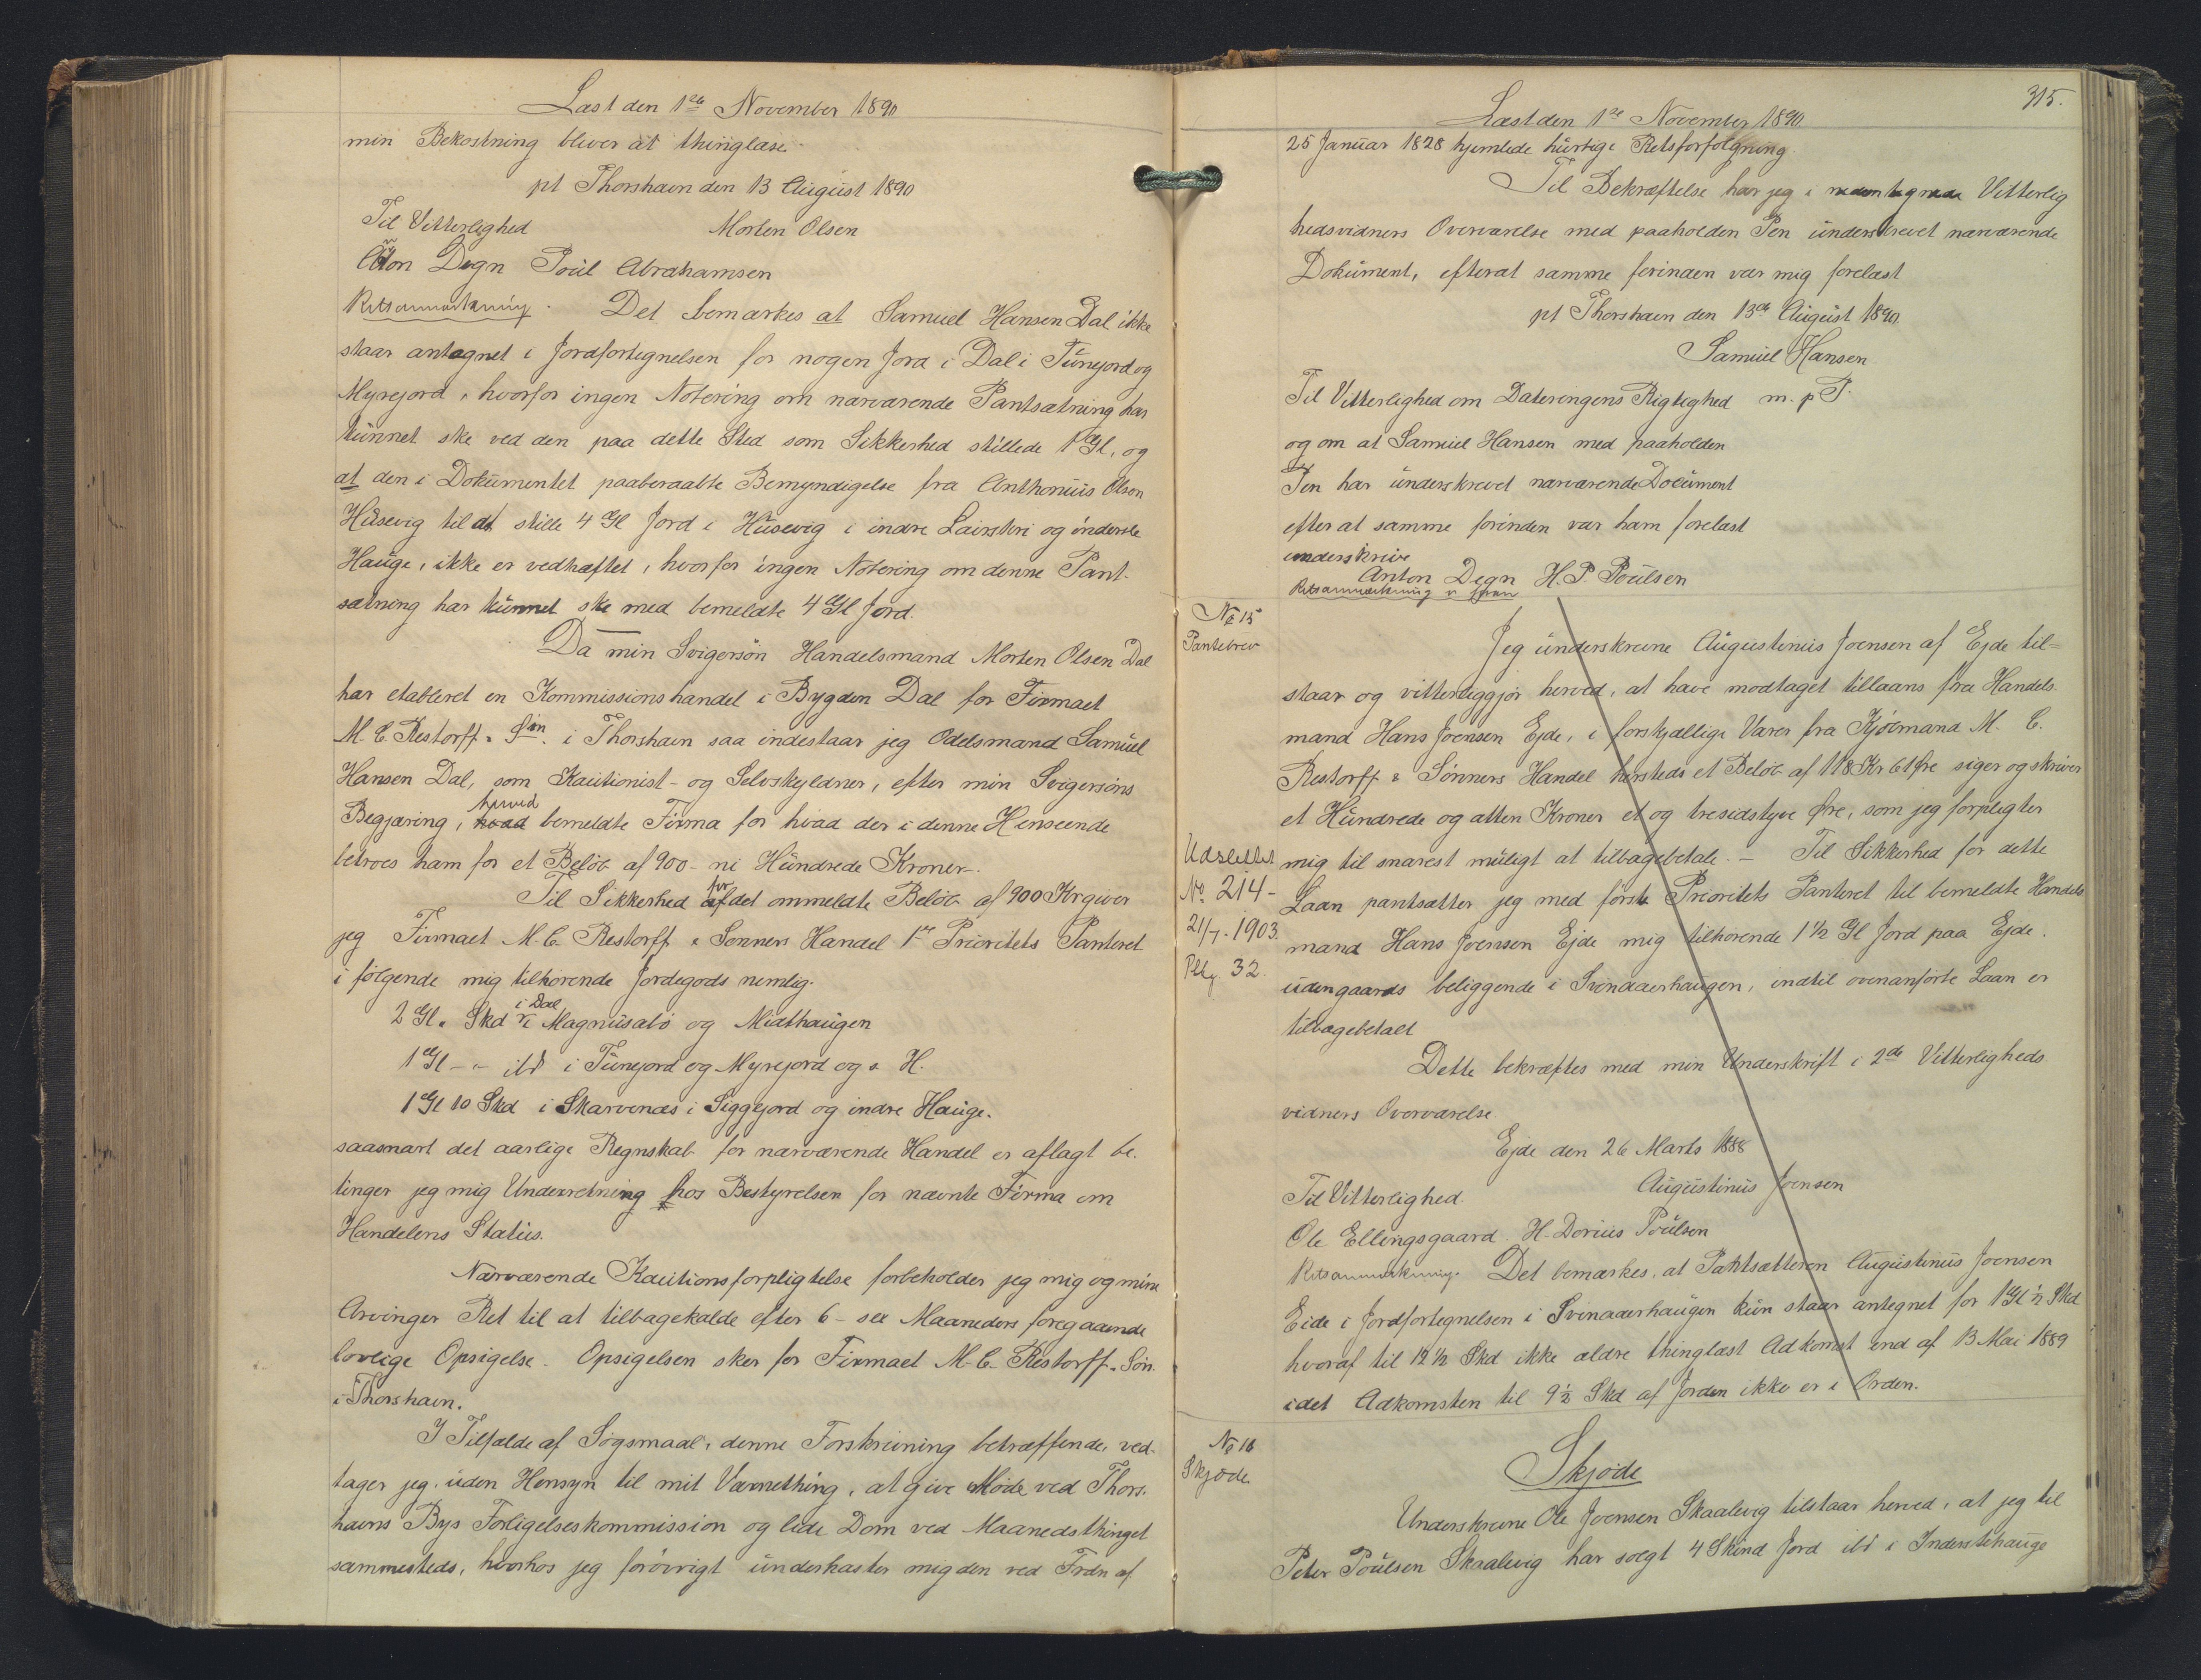 Læst den 1ste November 1890
min Bekostning bliver at thinglæse.
pt Thorshavn den 13 August 1890
Til Vitterlighed Morten Olsen
Anton Degn Poul Abrahamsen
Retsanmærkning. Det bemærkes at Samuel Hansen Dal ikke
staar antegnet i Jordfortegnelsen for nogen Jord i Dal i Tunejord og
Myrejord, hvorfor ingen Notering om nærværende Pantsætning har
kunnet ske ved den paa dette Sted som Sikkerhed stillede 1 Gl, og
at den i Dokumentet paaberaabte Bemyndigelse fra Anthonius Olsen
Husevig til at stille 4 Gl Jord i Husevig i indre og inderste
Hauge, ikke er vedhæftet, hvorfor ingen Notering om denne Pant-
sætning har kunnet ske med bemeldte 4 Gl Jord.
Da min Svigersön Handelsmand Morten Olsen Dal
har etableret en Kommissionshandel i Bygden Dal for Firmaet
M. C. Restorff & Sön. i Thorshavn saa indestaar jeg Odelsmand Samuel
Hansen Dal, som Kautionist- og Selvskyldner, efter min Svigersöns
Begjæring, hvad herved bemeldte Firma for hvad der i denne Henseende
betroes ham for et Beløb af 900 - ni Hundrede Kroner -.
Til Sikkerhed af for det ommeldte Beløb af 900 Kr giver
jeg Firmaet M. C. Restorff & Sønners Handel 1ste Prioritets Panteret
i følgende mig tilhorende Jordegods nemlig.
2 Gl. " Skd i Dal i Magnusatø og Midthaugen
1 Gl - " - ibd i Tunejord og Myrejord og s. H.
1 Gl 10 Skd i Skarvenæs i Siggejord og indre Hauge.
saasnart det aarlige Regnskab for nærværende Handel er aflagt be-
tinger jeg mig Underretning hos Bestyrelsen for nævnte Firma om
Handelens Status.
Nærværende Kautionsforpligtelse forbeholder jeg mig og mine
Arvinger Ret til at tilbagekalde efter 6 - sex Maaneders foregaaende
lovlige Opsigelse. Opsigelsen sker for Firmaet M. C. Restorff & Sön.
i Thorshavn.
I Tilfælde af Søgsmaal, denne Forskrivning betræffende, ved-
tager jeg, uden Hensyn til mit Værnething, at give Møde ved Thors-
havns Bys Forligelseskommission og lide Dom ved Maanedsthinget
sammesteds, hvorhos jeg forövrigt underkaster mig den ved Frdn af
315.
Læst den 1ste November 1890.
25 Januar 1828 hjemlede hurtige Retsforfølgning.
Til Bekræftelse har jeg i Vitterlig
hedsvidners Overværelse med paaholden Pen underskrevet nærværende
Dokument, efterat samme forinden var mig forelæst
pt Thorshavn den 13de August 1890.
Samuel Hansen
Til Vitterlighed om Dateringens Rigtighed m. p P.
og om at Samuel Hansen med paaholden
Pen har underskrevet nærværende Document
efter at samme forinden var ham forelæst
underskrive
Anton Degn H. P. Poulsen
Retsanmærkning
No 15
Pantebrev
Jeg underskrevne Augustinus Joensen af Ejde til-
staar og vitterliggjør herved, at have modtaget tillaans fra Handels-
mand Hans Joensen Ejde, i forskjællige Varer fra Kjøbmand M. C.
Restorff & Sönners Handel hersteds et Beløb af 118 Kr 61 Øre siger og skriver
et Hundrede og atten Kroner et og tresidstyve Øre, som jeg forpligter
mig til snarest muligt at tilbagebetale. - Til Sikkerhed for dette
Laan pantsætter jeg med første Prioritets Panteret til bemeldte Handels
mand Hans Joensen Ejde mig tilhorende 1 1/2 Gl Jord paa Ejde.
udengaards beliggende i Svinaaerhaugen, indtil ovenanførte Laan er
tilbagebetalt
Udslettet
No 214 -
21/7 - 1903.
Pbg. 32.
Dette bekræftes med min Underskrift i 2de Vitterligheds
vidners Overværelse
Ejde den 26 Marts 1888
Til Vitterlighed. Augustinus Joensen
Ole Ellingsgaard. H. Dorius Poulsen
Retsanmærkning. Det bemærkes, at Pantsætteren Augustinus Joensen
Eide i Jordfortegnelsen i Svinaaerhaugen kun staar antegnet for 1 Gl 1/2 Skd
hvoraf til 12 1/2 Skd ikke ældre thinglæst Adkomst end af 13 Mai 1889
idet Adkomsten til 9 1/2 Skd af Jorden ikke er i Orden.
No 16
Skjøde
Skjøde
Underskrevne Ole Joensen Skaalevig tilstaar herved, at jeg til
Peter Poulsen Skaalevig har solgt 4 Skind Jord ibd i Inderstehauge